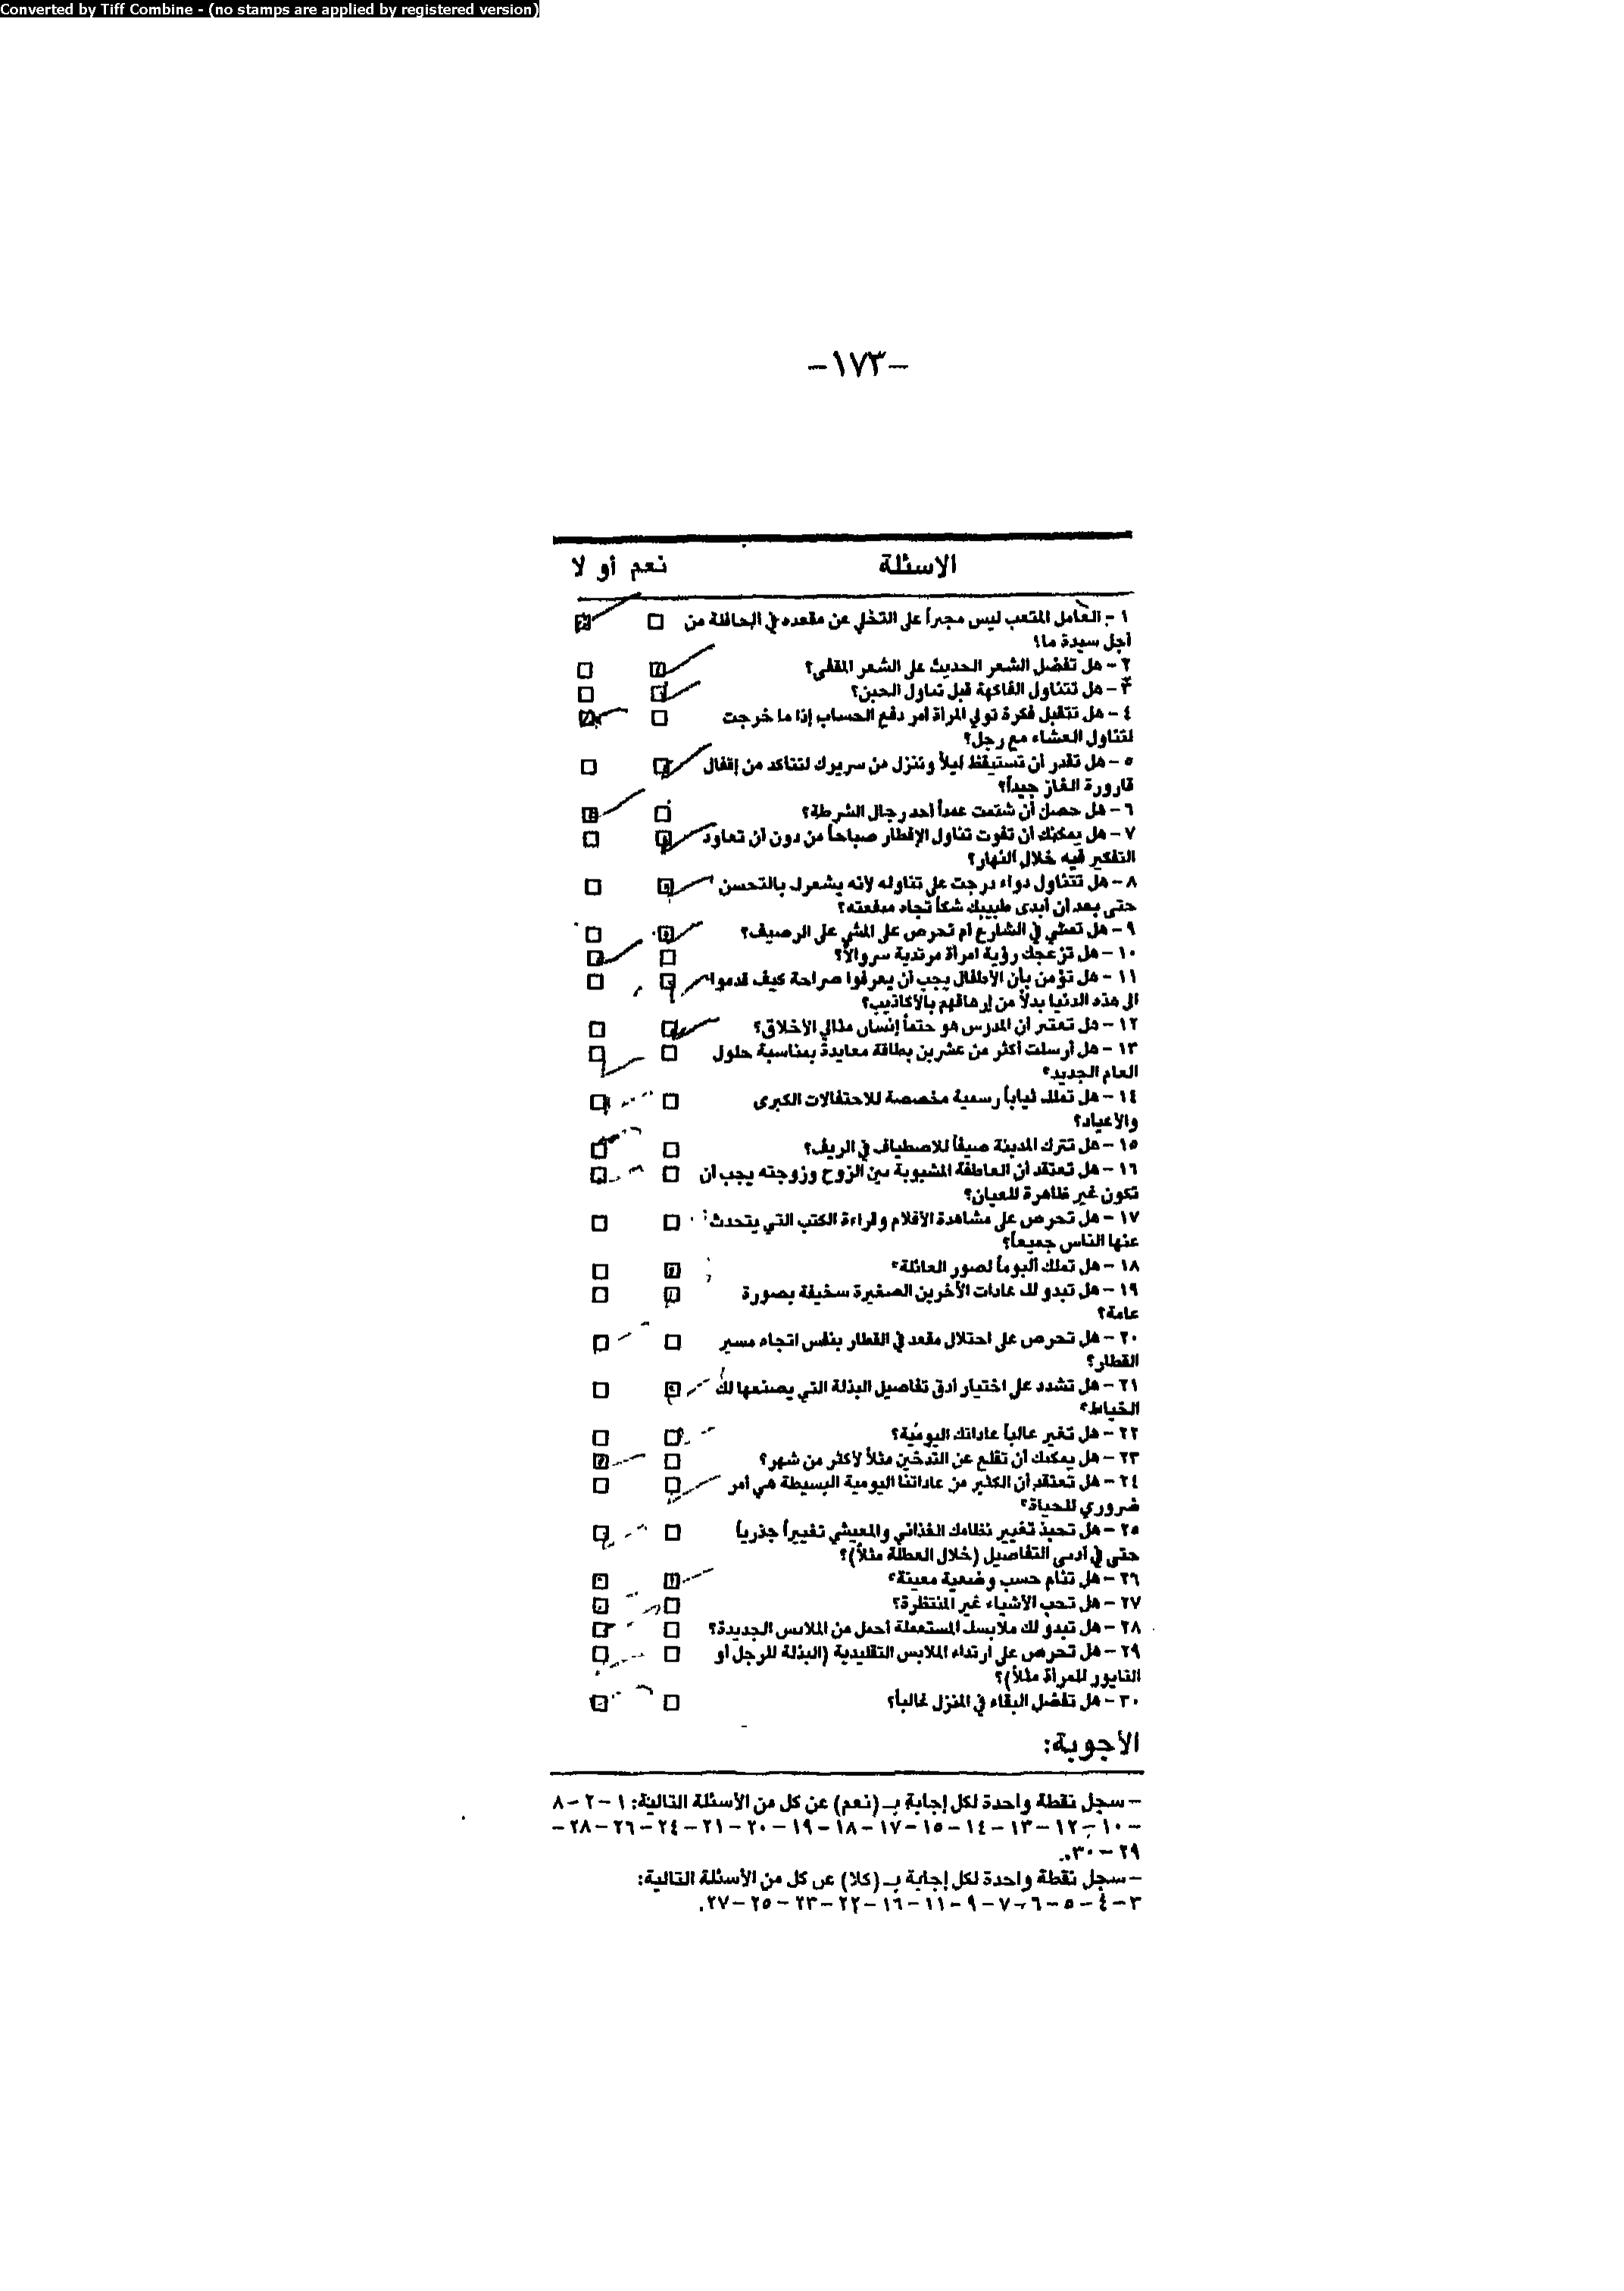 Converted by Tiff Combine - (no stamps are applied by registered version)
–١٧٣–
الاسئلة نعم أو لا
١ - العامل المتعب ليس مجبراً على التخلي عن مقعده في الحافلة من
أجل سيدة ما؟
٢ – هل تفضل الشعر الحديث على الشعر المقفى؟
٣ – هل تتناول الفاكهة قبل تناول الجبن؟
٤ – هل تتقبل فكرة تولي المرأة أمر دفع الحساب إذا ما خرجت
لتناول العشاء مع رجل؟
٥ – هل تقدر أن تستيقظ ليلاً وتنزل من سريرك لتتأكد من إقفال
قارورة الغاز جيداً؟
٦ – هل حصل أن شتمت عمداً أحد رجال الشرطة؟
٧ – هل يمكنك أن تفوت تناول الإفطار صباحاً من دون أن تعاود
التفكير فيه خلال النهار؟
٨ – هل تتناول دواء درجت على تناوله لأنه يشعرك بالتحسن
حتى بعد أن أبدى طبيبك شكاً تجاه منفعته؟
٩ – هل تمشي في الشارع أم تحرص على المشي على الرصيف؟
١٠ – هل تزعجك رؤية امرأة مرتدية سروالاً؟
١١ – هل تؤمن بأن الأطفال يجب أن يعرفوا صراحة كيف قدموا
الى هذه الدنيا بدلاً من إرهاقهم بالأكاذيب؟
١٢ – هل تعتبر أن المدرس هو حتماً إنسان مثالي الأخلاق؟
١٣ – هل أرسلت أكثر من عشرين بطاقة معايدة بمناسبة حلول
العام الجديد؟
١٤ – هل تملك ثياباً رسمية مخصصة للاحتفالات الكبرى
والاعياد؟
١٥ – هل تترك المدينة صيفاً للاصطياف في الريف؟
١٦ – هل تعتقد أن العاطفة المشبوبة بين الزوج وزوجته يجب أن
تكون غير ظاهرة للعيان؟
١٧ – هل تحرص على مشاهدة الأفلام وقراءة الكتب التي يتحدث
عنها الناس جميعاً؟
١٨ – هل تملك ألبوماً لصور العائلة؟
١٩ – هل تبدو لك عادات الأخرين الصغيرة سخيفة بصورة
عامة؟
٢٠ – هل تحرص على احتلال مقعد في القطار بنفس اتجاه مسير
القطار؟
٢١ – هل تشدد على اختيار أدق تفاصيل البذلة التي يصنعها لك
الخياط؟
٢٢ – هل تغير غالباً عاداتك اليومية؟
٢٣ – هل يمكنك أن تقلع عن التدخين مثلاً لأكثر من شهر؟
٢٤ – هل تعتقد أن الكثير من عاداتنا اليومية البسيطة هي أمر
ضروري للحياة؟
٢٥ – هل تحبذ تغيير نظامك الغذائي والمعيشي تغييراً جذرياً
حتى في أدنى التفاصيل (خلال العطلة مثلاً)؟
٢٦ – هل تنام حسب وضعية معينة؟
٢٧ – هل تحب الأشياء غير المنتظرة؟
٢٨ – هل تبدو لك ملابسك المستعملة أجمل من الملابس الجديدة؟
٢٩ – هل تحرص على ارتداء الملابس التقليدية (البذلة للرجل أو
التايور للمرأة مثلاً)؟
٣٠ – هل تفضل البقاء في المنزل غالباً؟
الأجوبة:
– سجل نقطة واحدة لكل إجابة بـ (نعم) عن كل من الأسئلة التالية: ١ – ٢ – ٨
– ١٠ – ١٢ – ١٣ – ١٤ – ١٥ – ١٧ – ١٨ – ١٩ – ٢٠ – ٢١ – ٢٤ – ٢٦ – ٢٨ –
٢٩ – ٣٠.
– سجل نقطة واحدة لكل إجابة بـ (كلا) عن كل من الأسئلة التالية:
٣ – ٤ – ٥ – ٦ – ٧ – ٩ – ١١ – ١٦ – ٢٢ – ٢٣ – ٢٥ – ٢٧.